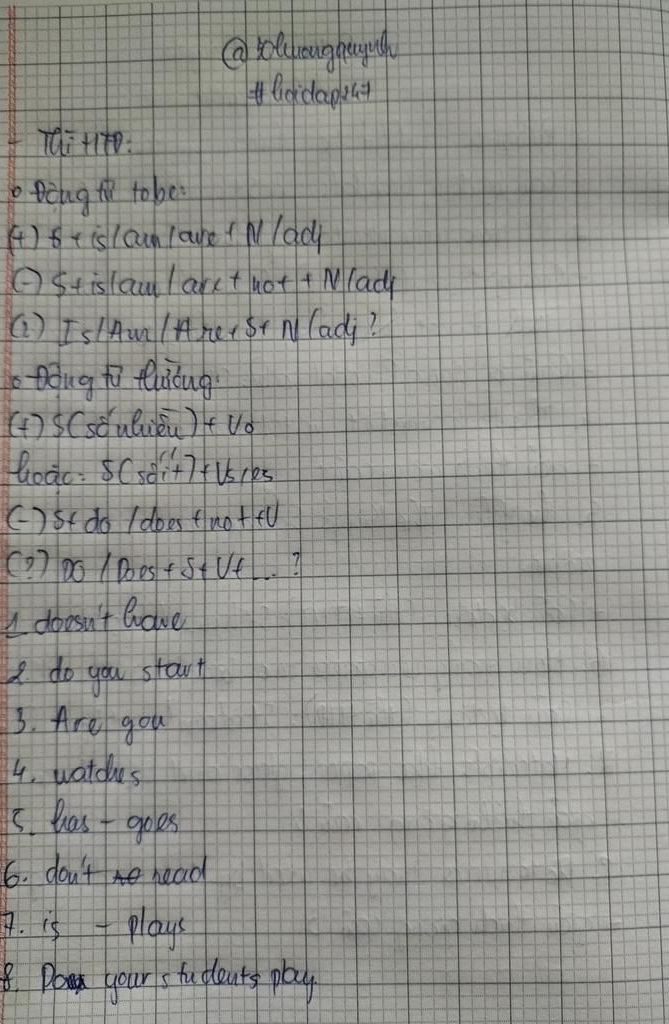 #hoidap247
- Thì HTĐ:
o Động từ tobe:
(+) S + is/am/are + N/adj
(-) S + is/am/are + not + N/adj
(?) Is/Am/Are + S + N/adj?
o Động từ thường:
(+) S(số nhiều) + Vo
hoặc: S(số ít) + Vs/es
(-) S + do/does + not + V
(?) Do/Does + S + V + ... ?
1. doesn't have
2. do you start
3. Are you
4. watches
5. has - goes
6. don't read
7. is - plays
8. Do your students play